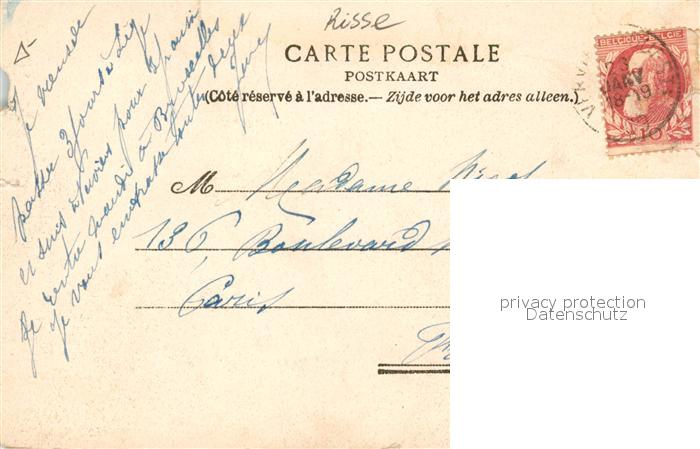 Risse
CARTE POSTALE
POSTKAART
(Côté réservé à l'adresse.— Zijde voor het adres alleen.)
BELGIQUE·BELGIË
10
M Madame
136, Boulevard
Paris
Je
passer 3 jours à Liège
et suis à Verviers pour
Je rentre mardi à Bruxelles
Je vous embrasse toutes deux
privacy protection
Datenschutz